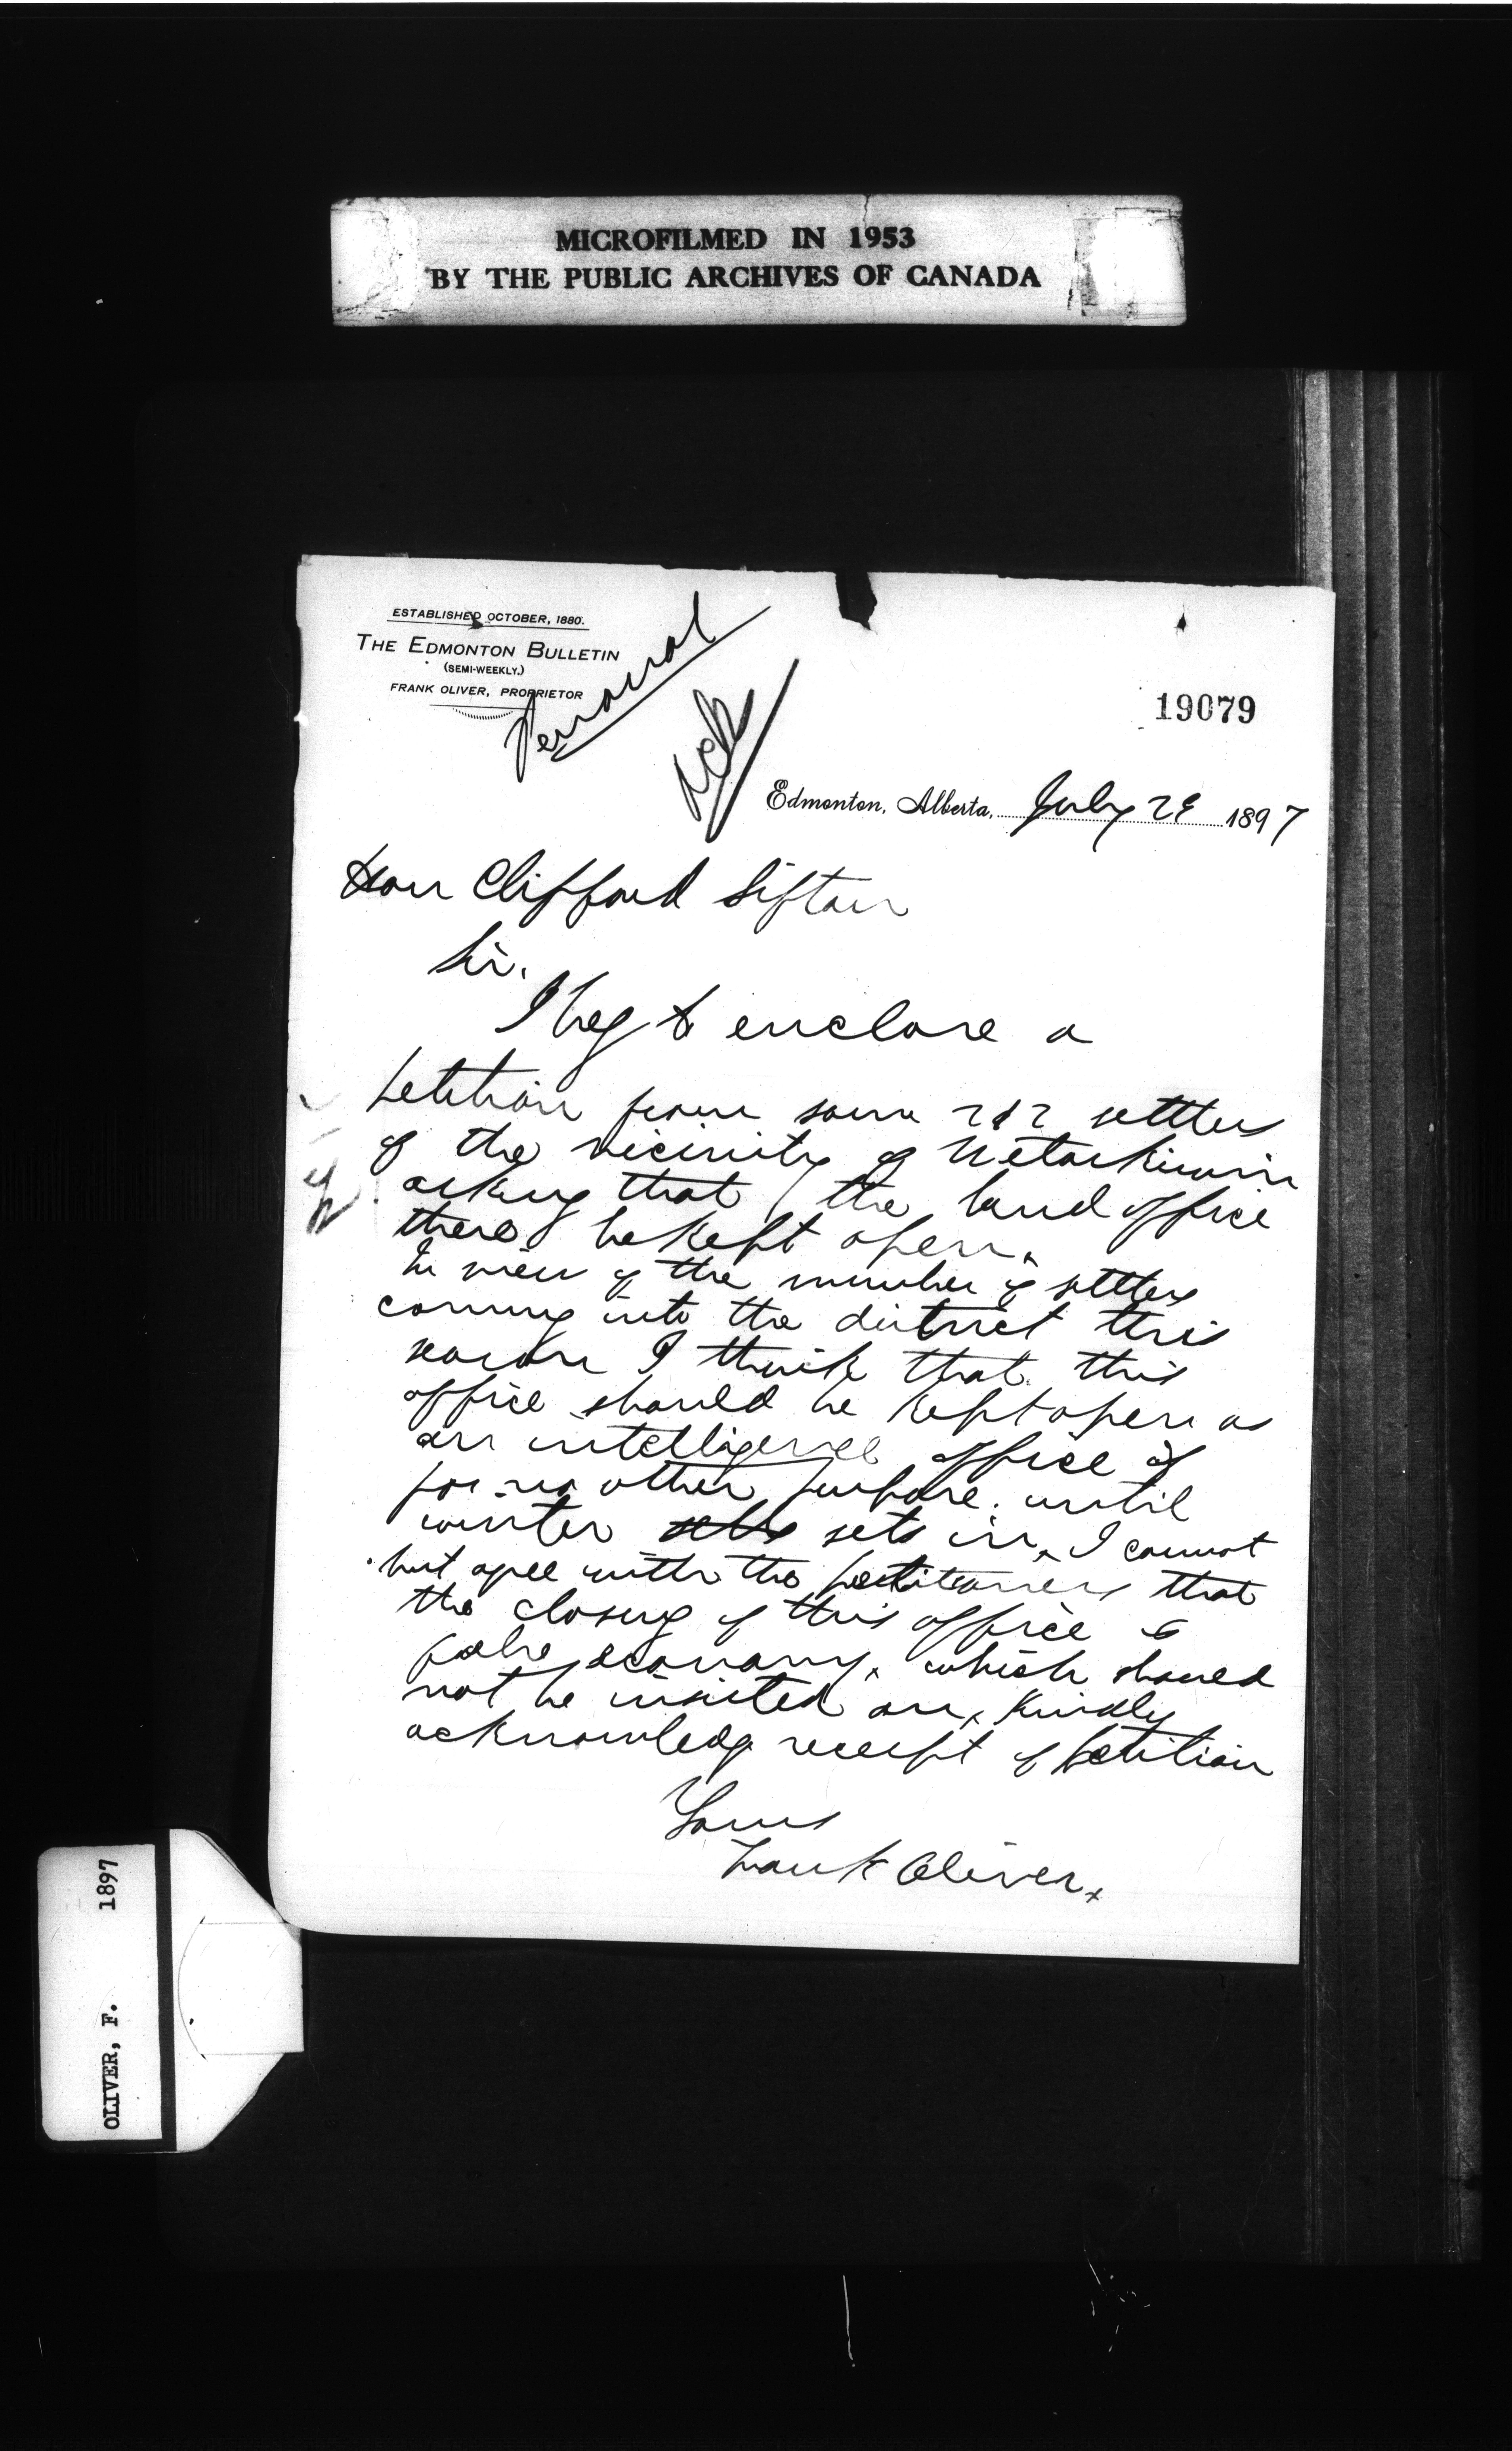 MICROFILMED IN 1953
BY THE PUBLIC ARCHIVES OF CANADA
ESTABLISHED OCTOBER, 1880.
THE EDMONTON BULLETIN
(SEMI-WEEKLY.)
FRANK OLIVER, PROPRIETOR
Personal
Ack
19079
Edmonton, Alberta, July 29 1897
Hon Clifford Sifton
Sir,
I beg to enclose a
petition from some settlers
of the vicinity of Wetaskiwin
asking that the land office
there be kept open.
In view of the number of settlers
coming into the district this
season I think that this
office should be kept open as
an intelligence office if
for no other purpose. until
winter sets in. I cannot
but agree with the petitioners that
the closing of this office is
false economy. which should
not be insisted on. Kindly
acknowledge receipt of petition
Yours
Frank Oliver.
OLIVER, F. 1897